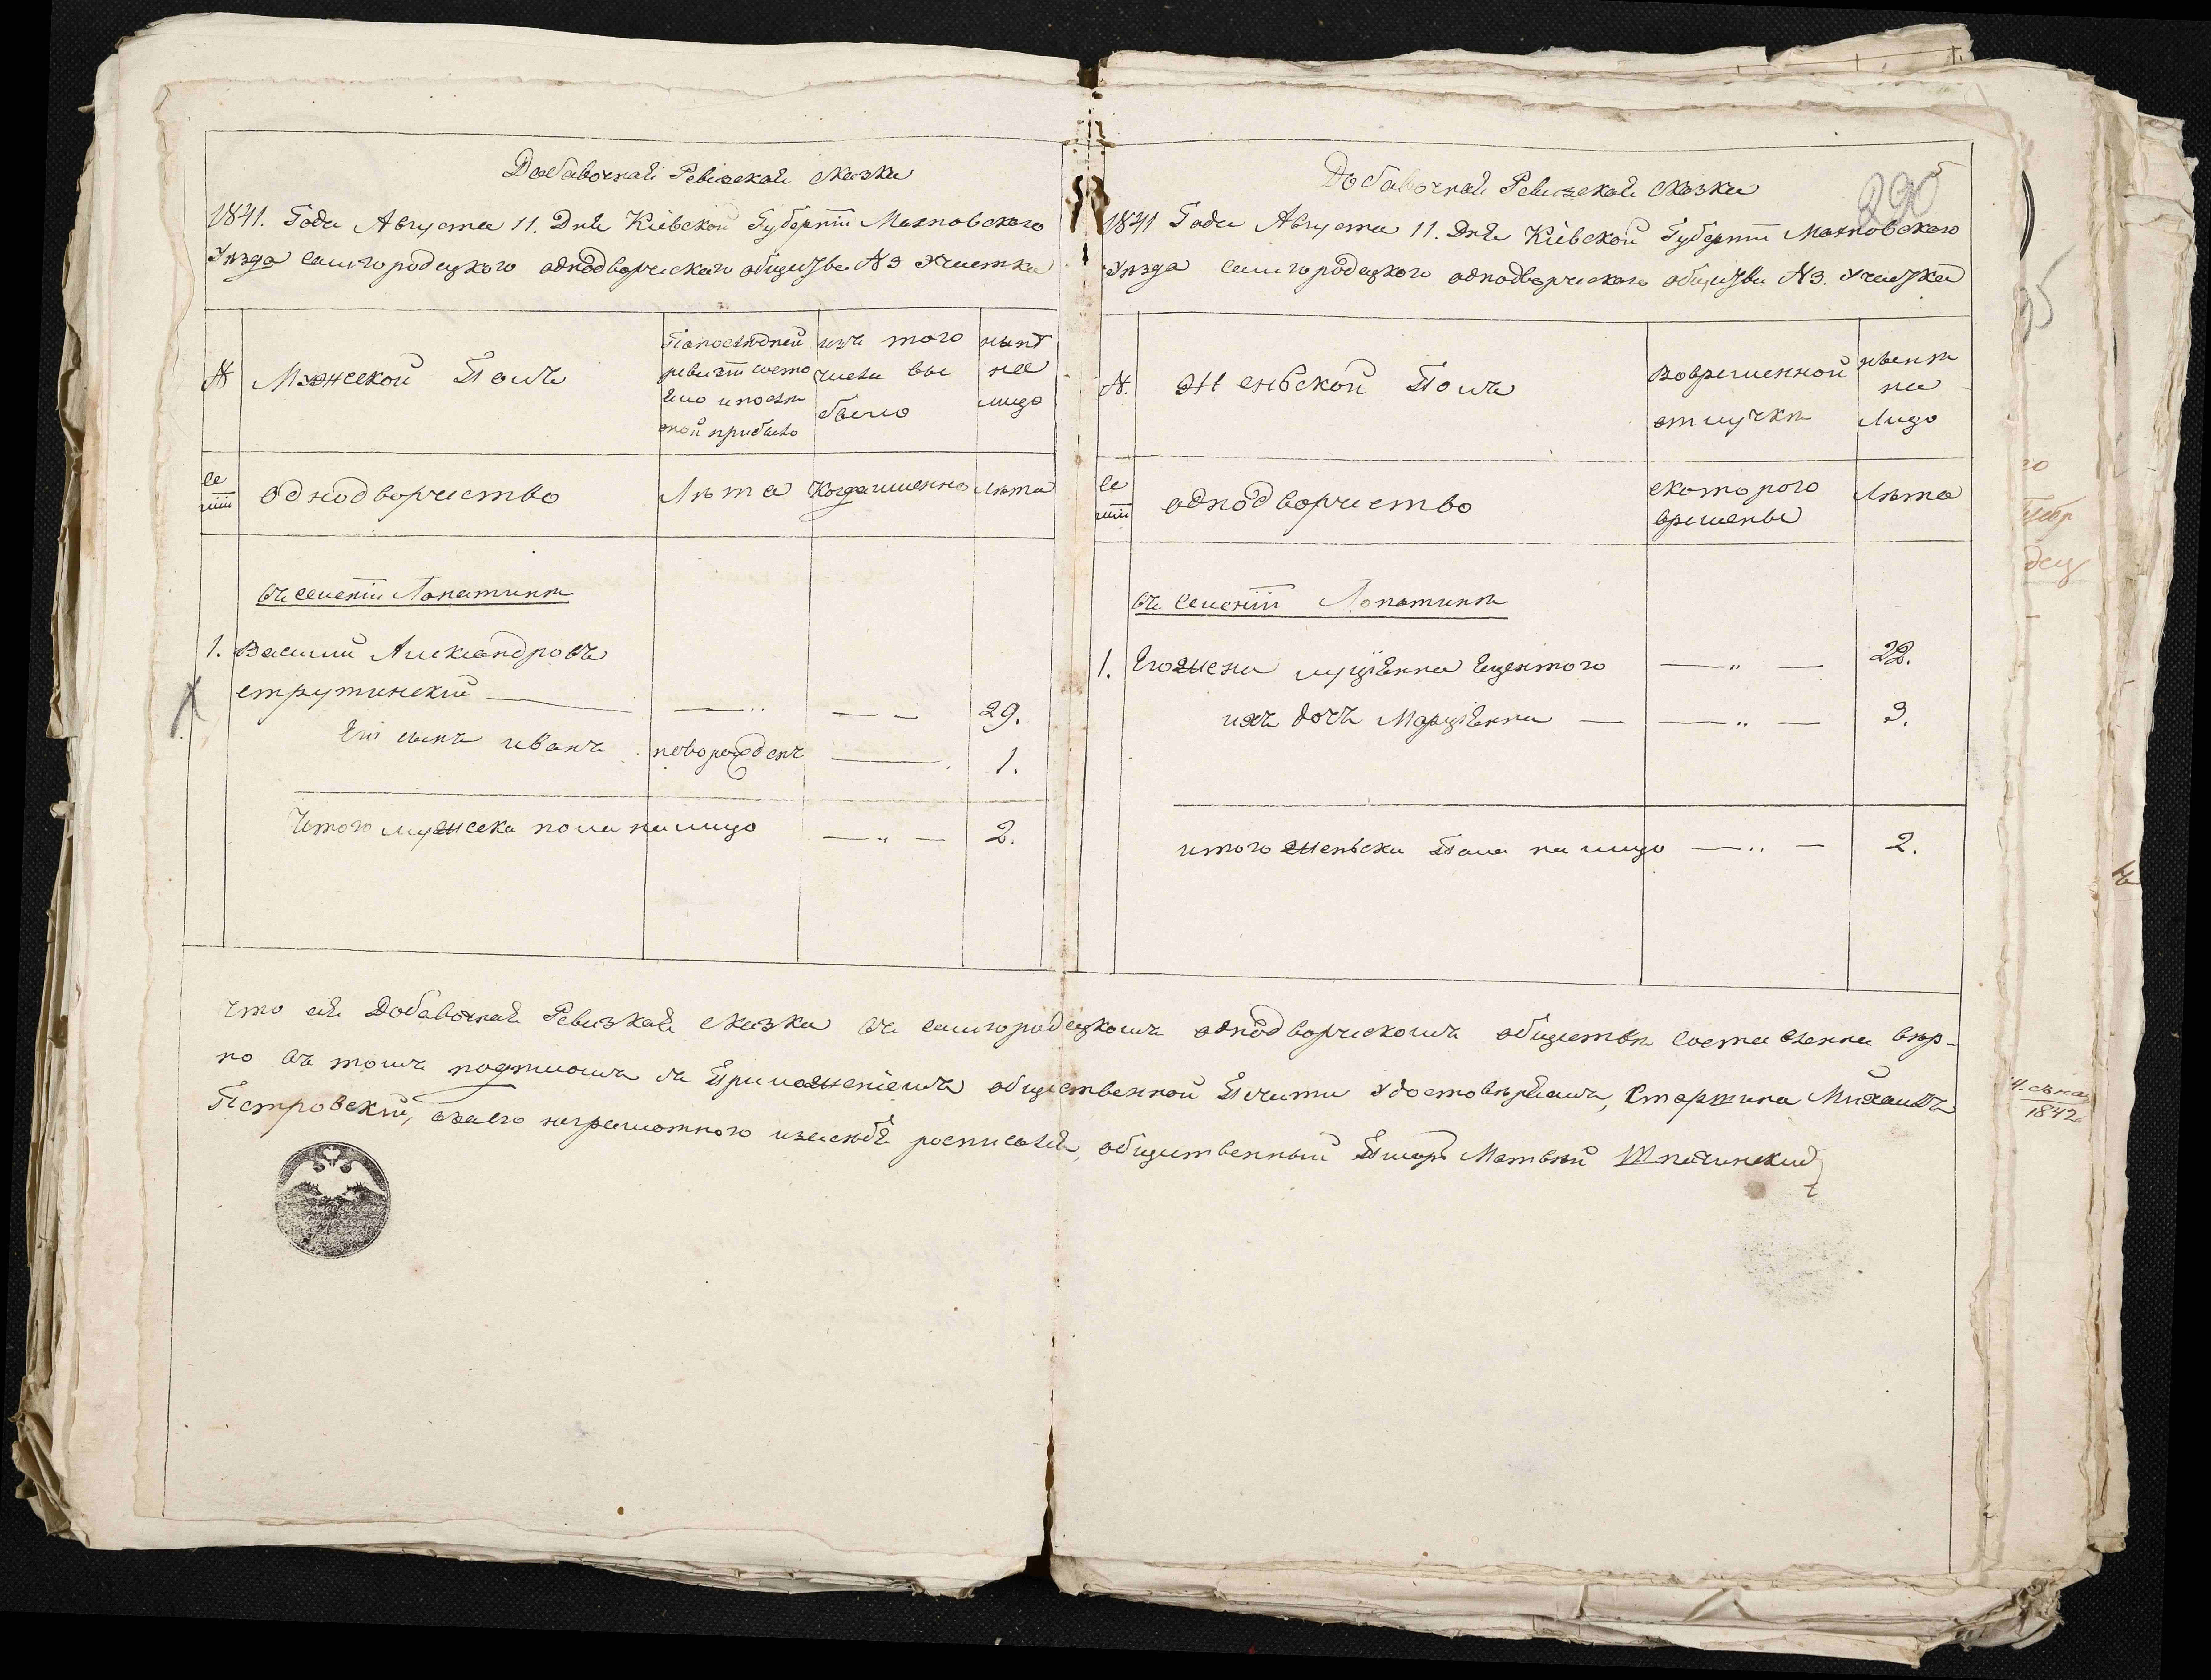 Добавочная Ревизская сказка
1841. Года Августа 11. Дня Кіевской Губерніи Махновского
Уезда самгородецкого однодворческого общества №3 Участка
№
Мужеской Полъ
По последней
ревизіи состо
яло и после
оной прибыло
изъ того
числа вы
было
ныне
на
лицо
се
міи
однодворчество
Лета
Когда именно
лета
въ селеніи Лопатине
1. Василий Александровъ
струтинский — — „ — — 29.
Его сынъ иванъ новорожденъ — 1.
Итого мужеска пола на лицо — „ — 2.
290
Добавочная Ревизская сказка
1841 Года Августа 11. Дня Кіевской Губерніи Махновского
Уезда самгородецкого однодворческого общества №3. Участка
№.
Женьской Полъ
Вовременной
отлучке
ныне
на
лицо
се
міи
однодворчество
скоторого
времены
Лета
въ селеніи Лопатине
1. Его жена луціанна — „ — 22.
ихъ дочь Марціанна — — „ — 3.
итого женьска Пола на лицо — „ — 2.
что сія Добавочная Ревизкая сказка въ самгородецкомъ однодворческомъ обществе составленна вер-
но въ томъ подписомъ съ Приложеніемъ общественной Печати Удостоверяемъ, Старшина Михаилъ
Петровский, а за его неграмотного и за себя росписался, общественный Писарь Матвей Шпачинский
1842